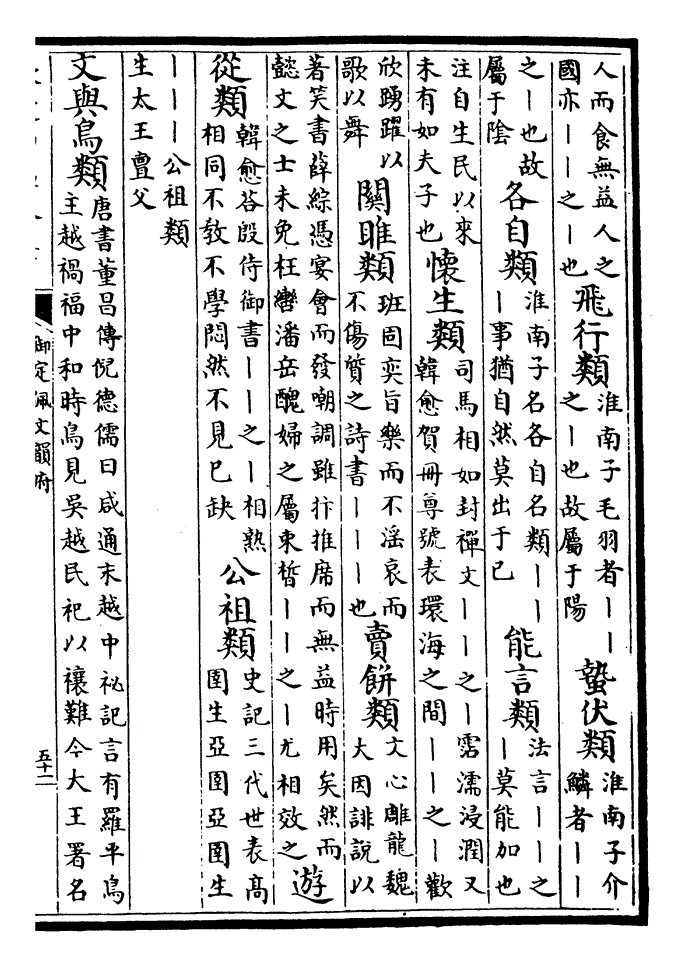 人而食無益人之
國亦丨丨之丨也
飛行類
淮南子毛羽者丨丨
之丨也故屬于陽
蟄伏類
淮南子介
鱗者丨丨
之丨也故
屬于陰
各自類
淮南子名各自名類丨丨
丨事猶自然莫出于已
能言類
法言丨丨之
丨莫能加也
注自生民以來
未有如夫子也
懷生類
司馬相如封禪文丨丨之丨霑濡浸潤又
韓愈賀冊尊號表環海之間丨丨之丨歡
欣踴躍以
歌以舞
關雎類
班固奕旨樂而不淫哀而
不傷質之詩書丨丨丨也
賣餅類
文心雕龍魏
大因誹說以
著笑書薛綜憑宴會而發嘲調雖抃推席而無益時用矣然而
懿文之士未免枉轡潘岳醜婦之屬束皙丨丨之丨尤相效之
遊
從類
韓愈荅殷侍御書丨丨之丨相熟
相同不敎不學悶然不見已缺
公祖類
史記三代世表高
圉生亞圉亞圉生
丨丨丨公祖類
生太王亶父
文與鳥類
唐書董昌傳倪德儒曰咸通末越中祕記言有羅平鳥
主越禍福中和時鳥見吳越民祀以禳難今大王署名
御定佩文韻府